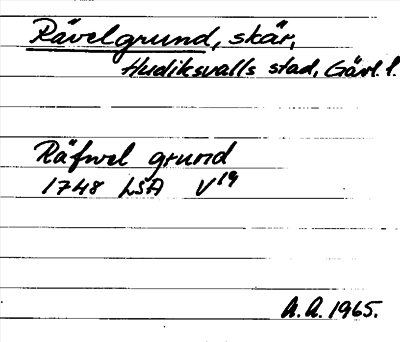 Rävelgrund, skär,
Hudiksvalls stad, Gävl. l.
Räfwel grund
1748 LSA V19
A.A. 1965.